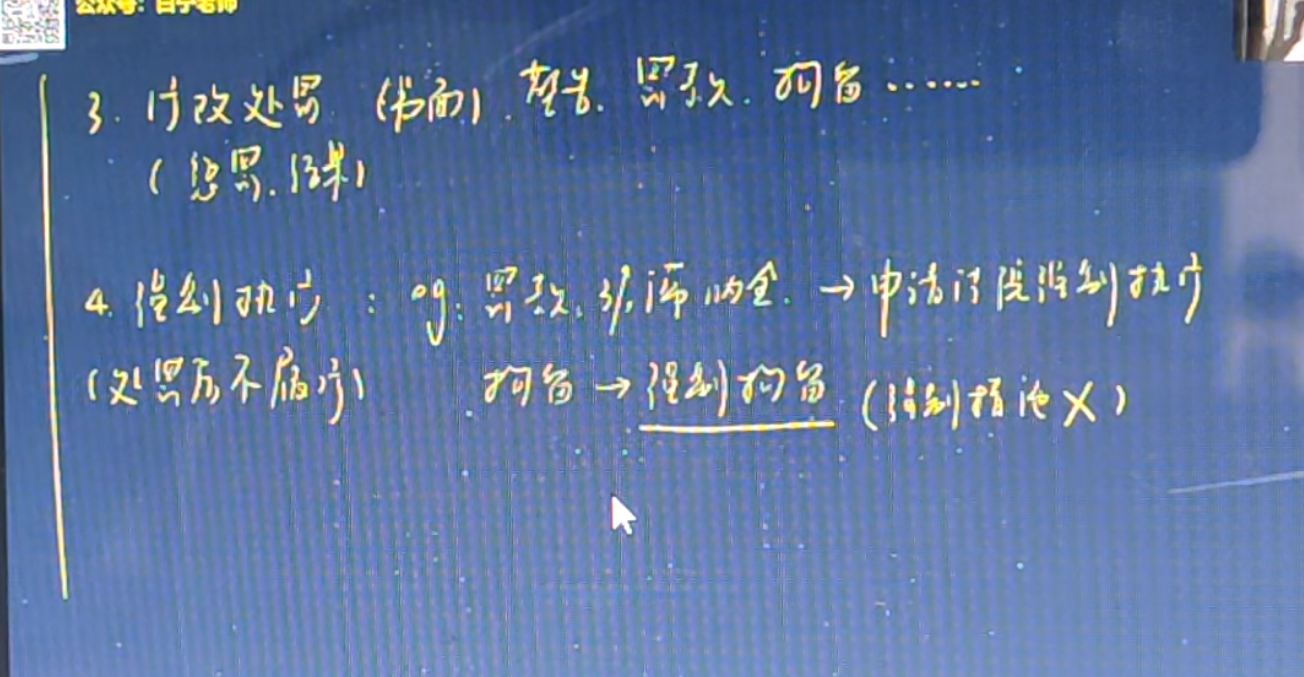 公众号：白宁老师
3. 行政处罚 (书面). 警告. 罚款. 拘留 ······
(惩罚. 结果)
4. 强制执行 : eg: 罚款. 滞纳金. → 申请法院强制执行
(处罚后不履行) 拘留 → 强制拘留 (强制措施 X)